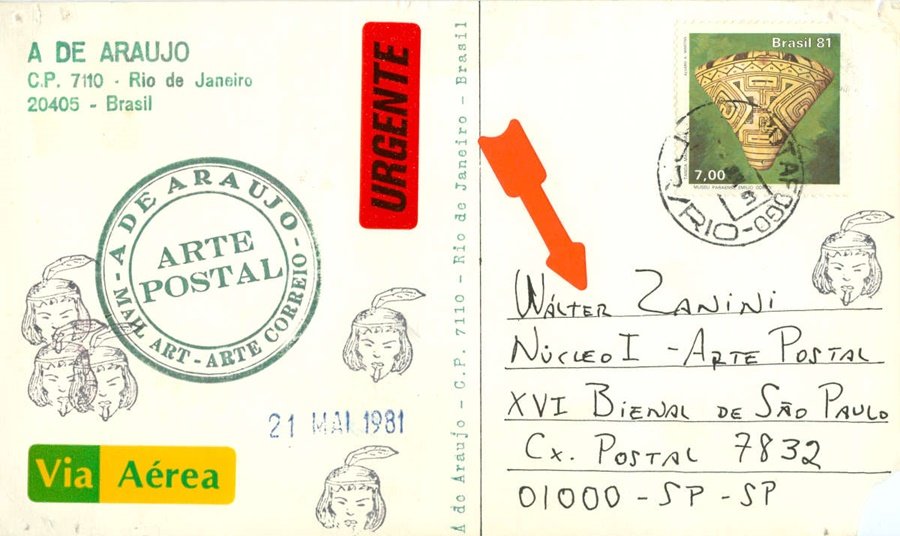 A DE ARAUJO
C.P. 7110 - Rio de Janeiro
20405 - Brasil
URGENTE
A DE ARAUJO
MAIL ART - ARTE CORREIO
ARTE
POSTAL
21 MAI 1981
Via Aérea
A de Araujo - C.P. 7110 - Rio de Janeiro - Brasil
Brasil 81
7,00
MUSEU PARAENSE EMILIO
BOTAFOGO
RIO
Wálter Zanini
Núcleo I - Arte Postal
XVI Bienal de São Paulo
Cx. Postal 7832
01000 - SP - SP